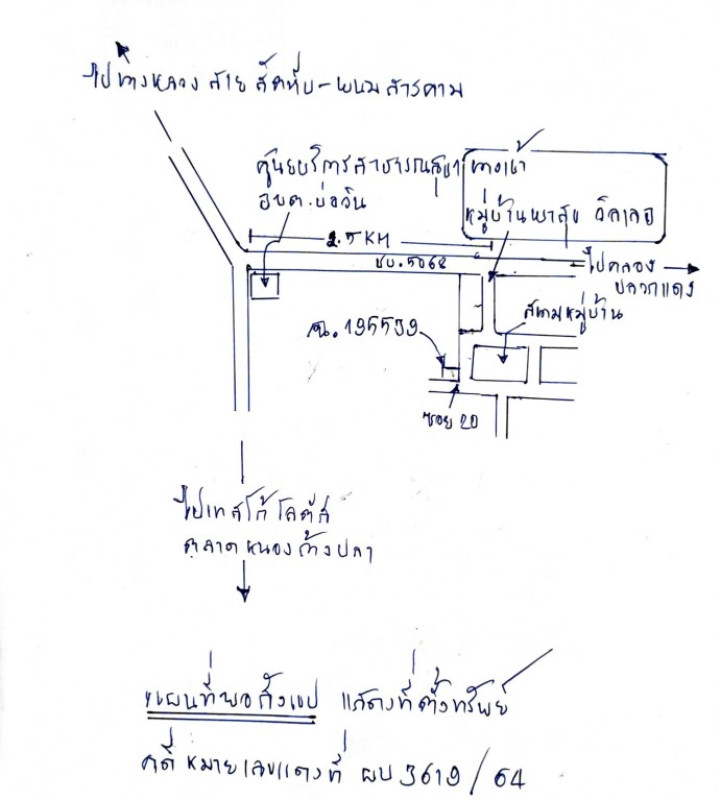 ไปทางหลวง สาย สัตหีบ-พนมสารคาม
ศูนย์บริการสาธารณสุข
อบต.บ่อวิน
ทางเข้า
หมู่บ้านผาสุข วิลเลจ
2.5 KM
ชบ.5062
ไปคลอง
ปลวกแดง
สนามหมู่บ้าน
ฉ.195599
ซอย 20
ไปเทสโก้ โลตัส
ตลาดหนองก้างปลา
แผนที่พอสังเขป แสดงที่ตั้งทรัพย์
คดี หมายเลขแดงที่ ผบ 3619/64